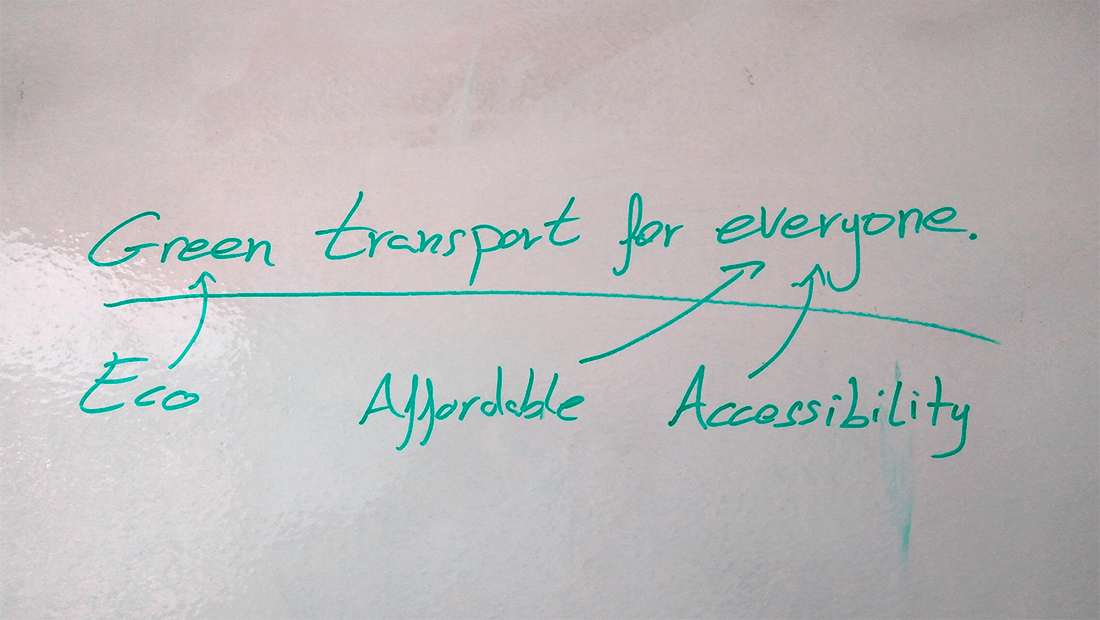 Green transport for everyone.
Eco Affordable Accessibility